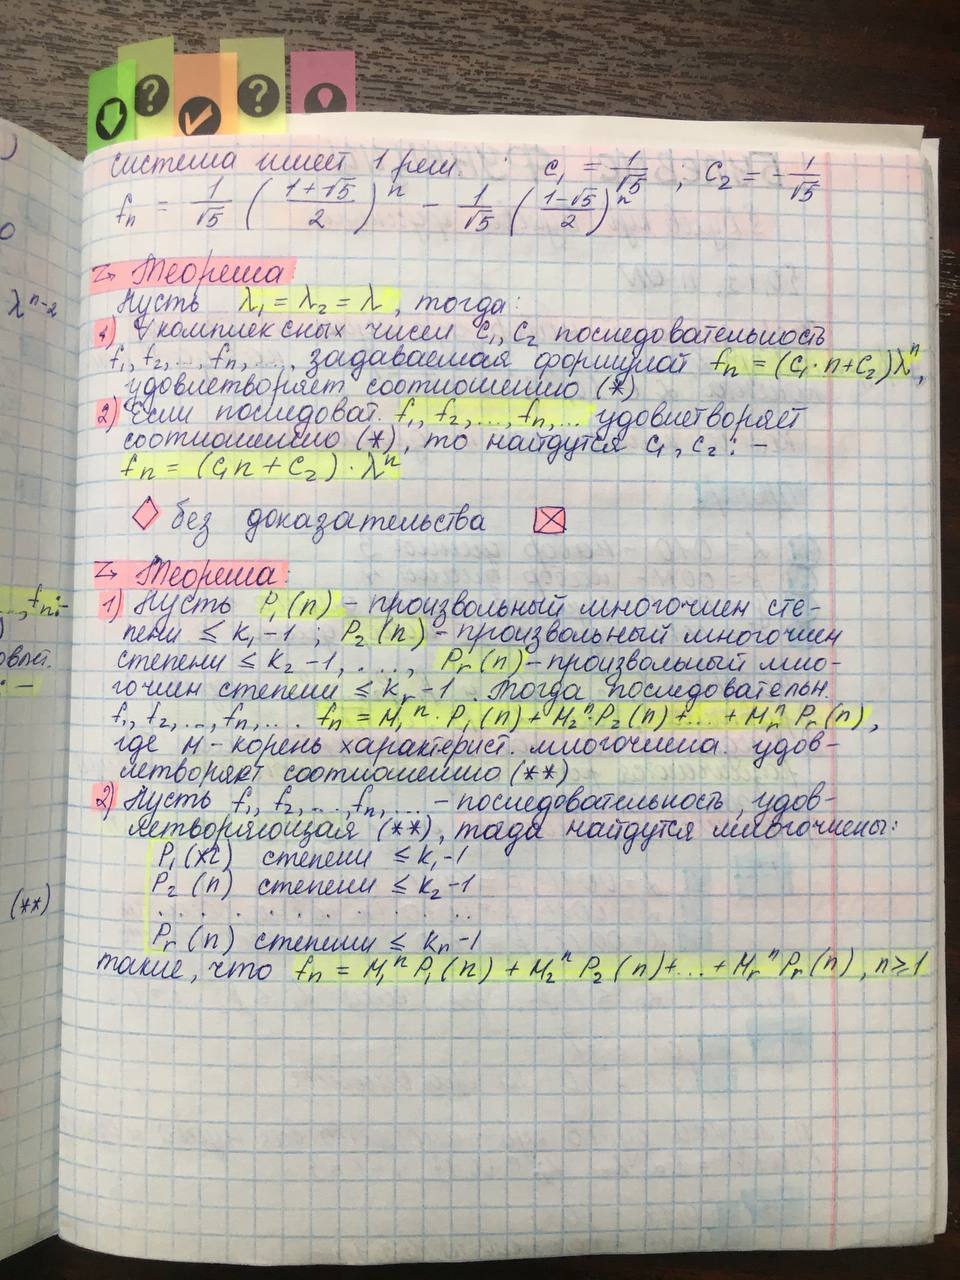 система имеет 1 реш. : c₁ = 1/√5 ; c₂ = -1/√5
fₙ = 1/√5 ((1+√5)/2)ⁿ - 1/√5 ((1-√5)/2)ⁿ
λⁿ⁻²
Теорема
Пусть λ₁ = λ₂ = λ, тогда:
1) ∀ комплексных чисел c₁, c₂ последовательность
f₁, f₂, ... fₙ, ..., задаваемая формулой fₙ = (c₁·n+c₂)λⁿ,
удовлетворяет соотношению (*)
2) Если последоват. f₁, f₂, ..., fₙ, ... удовлетворяет
соотношению (*), то найдутся c₁, c₂ : -
fₙ = (c₁n + c₂)·λⁿ
без доказательства
Теорема:
1) Пусть P₁(n) - произвольный многочлен сте-
пени ≤ k₁-1 ; P₂(n) - произвольный многочлен
степени ≤ k₂-1, ..., Pᵣ(n) - произвольный мно-
гочлен степени ≤ kᵣ-1. Тогда последовательн.
f₁, f₂, ..., fₙ, ... fₙ = M₁ⁿ·P₁(n) + M₂ⁿP₂(n) + ... + Mᵣⁿ Pᵣ(n),
где м - корень характерист. многочлена. удов-
летворяет соотношению (**)
2) Пусть f₁, f₂, ... fₙ, ... - последовательность, удов-
летворяющая (**), тогда найдутся многочлены:
P₁(n) степени ≤ k₁-1
P₂(n) степени ≤ k₂-1
. . . . . . . . . .
Pᵣ(n) степени ≤ kₙ-1
такие, что fₙ = M₁ⁿP₁(n) + M₂ⁿ P₂(n) + ... + Mᵣⁿ Pᵣ(n), n ≥ 1
(**)